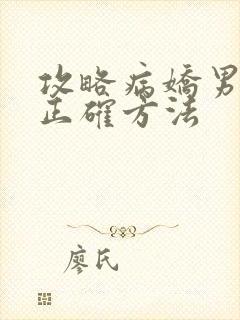 攻略病嬌男
正確方法
廖氏